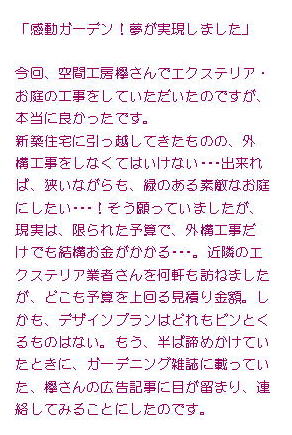 「感動ガーデン！夢が実現しました」
今回、空間工房欅さんでエクステリア・
お庭の工事をしていただいたのですが、
本当に良かったです。
新築住宅に引っ越してきたものの、外
構工事をしなくてはいけない･･･出来れ
ば、狭いながらも、緑のある素敵なお庭
にしたい･･･！そう願っていましたが、
現実は、限られた予算で、外構工事だ
けでも結構お金がかかる･･･。近隣のエ
クステリア業者さんを何軒も訪ねました
が、どこも予算を上回る見積り金額。し
かも、デザインプランはどれもピンとく
るものはない。もう、半ば諦めかけてい
たときに、ガーデニング雑誌に載ってい
た、欅さんの広告記事に目が留まり、連
絡してみることにしたのです。